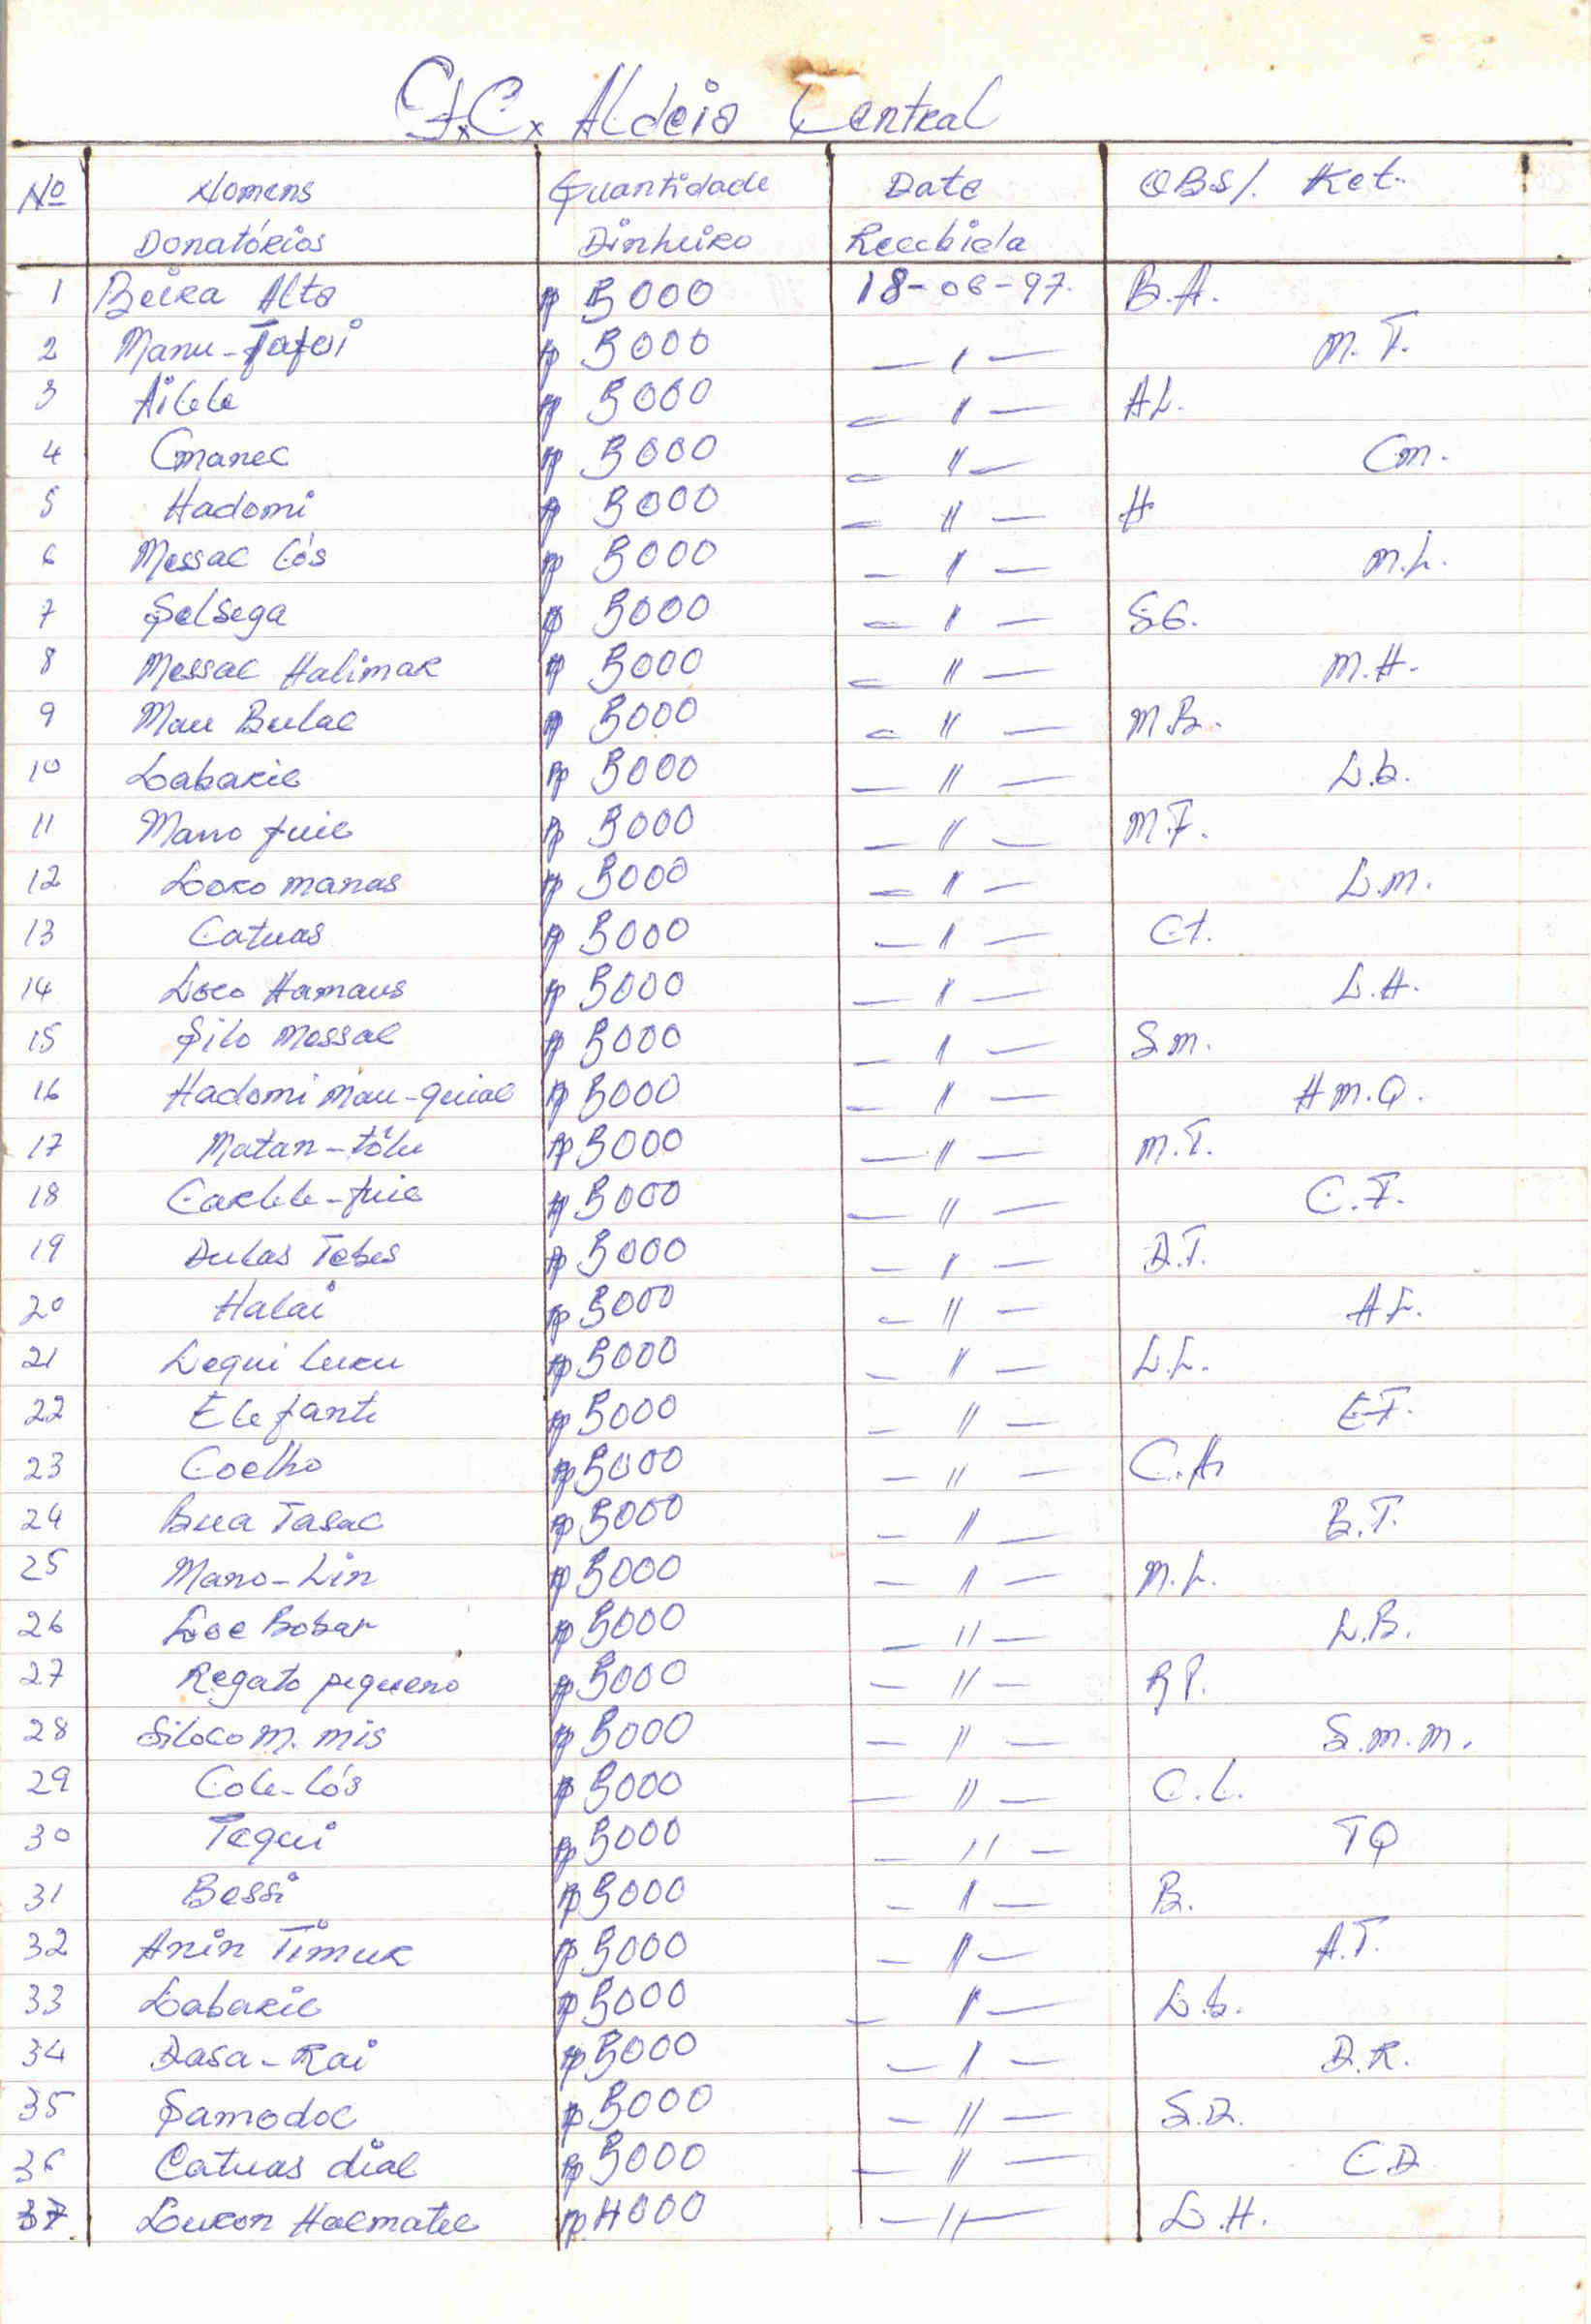 F.C. Aldeia Central
Nº Nomens Quantidade Date OBS/. Ket.
Donatórios Dinheiro Recebida
1 Beira Alta Rp 5000 18-06-97. B.A.
2 Manu-Tafui Rp 5000 — " — M.T.
3 Ailele Rp 5000 — " — AL.
4 Cmanec Rp 5000 — " — Cm.
5 Hadomi Rp 5000 — " — H
6 Messac Lós Rp 5000 — " — M.L.
7 Selsega Rp 5000 — " — SG.
8 Messac Halimar Rp 5000 — " — M.H.
9 Mau Bulac Rp 5000 — " — M.B.
10 Labaric Rp 5000 — " — L.b.
11 Mano fuic Rp 5000 — " — M.F.
12 Loro manas Rp 5000 — " — L.m.
13 Catuas Rp 5000 — " — Ct.
14 Loco Hamaus Rp 5000 — " — L.H.
15 Silo Messac Rp 5000 — " — S.m.
16 Hadomi Mau-quiac Rp 5000 — " — H M.Q.
17 Matan-tólu Rp 5000 — " — M.T.
18 Carlele-fuic Rp 5000 — " — C.F.
19 Dulas Tebes Rp 5000 — " — D.T.
20 Halai Rp 5000 — " — H L.
21 Lequi luru Rp 5000 — " — L.L.
22 Elefante Rp 5000 — " — E.F.
23 Coelho Rp 5000 — " — C.h
24 Bua Tasac Rp 5000 — " — B.T.
25 Mano-Lin Rp 5000 — " — M.L.
26 Loe Bobar Rp 5000 — " — L.B.
27 Regato pequeno Rp 5000 — " — R P.
28 Siloco M. mis Rp 5000 — " — S.m.m.
29 Cole-lós Rp 5000 — " — C.L.
30 Tequi Rp 5000 — " — TQ
31 Bessi Rp 5000 — " — B.
32 Anin Timur Rp 5000 — " — A.T.
33 Labaric Rp 5000 — " — L.b.
34 Dasa-Rai Rp 5000 — " — D.R.
35 Samodoc Rp 5000 — " — S.D.
36 Catuas dial Rp 5000 — " — C D
37. Luron Halmatec Rp 4000 — " — L.H.